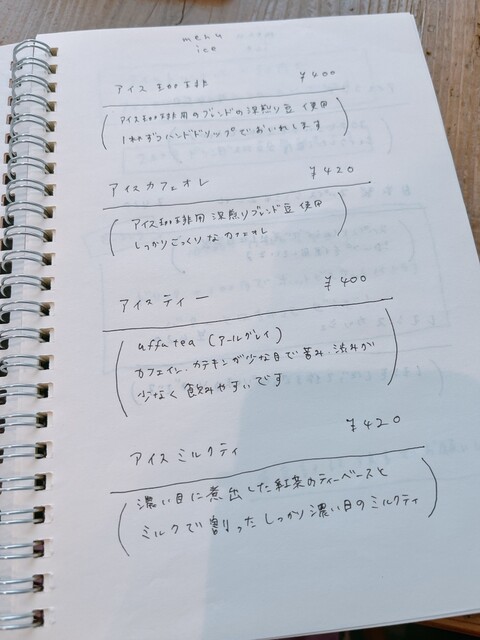 menu
ice
アイス珈琲 ¥400
(アイス珈琲用のブレンドの深煎り豆使用
1杯ずつハンドドリップでおいれします)
アイスカフェオレ ¥420
(アイス珈琲用深煎りブレンド豆使用
しっかりこっくりなカフェオレ)
アイスティー ¥400
(uffu tea (アールグレイ)
カフェイン、カテキンが少な目で苦み、渋みが
少なく飲みやすいです)
アイスミルクティ ¥420
(濃い目に煮出した紅茶のティーベースと
ミルクで割ったしっかり濃い目のミルクティ)